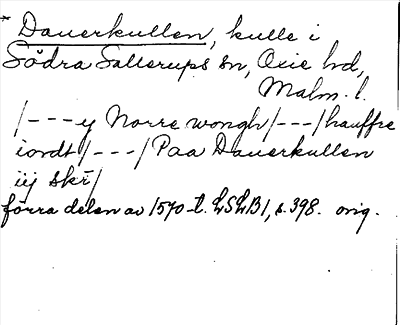 * Dauerkullen, kulle i
Södra Sallerups sn, Oxie hd,
Malm. l.
/---y Norre wongh/---/hauffre
iordt/---/Paa Dauerkullen
iij skr̄/
förra delen av 1570-t. LSLB1, s. 398. orig.